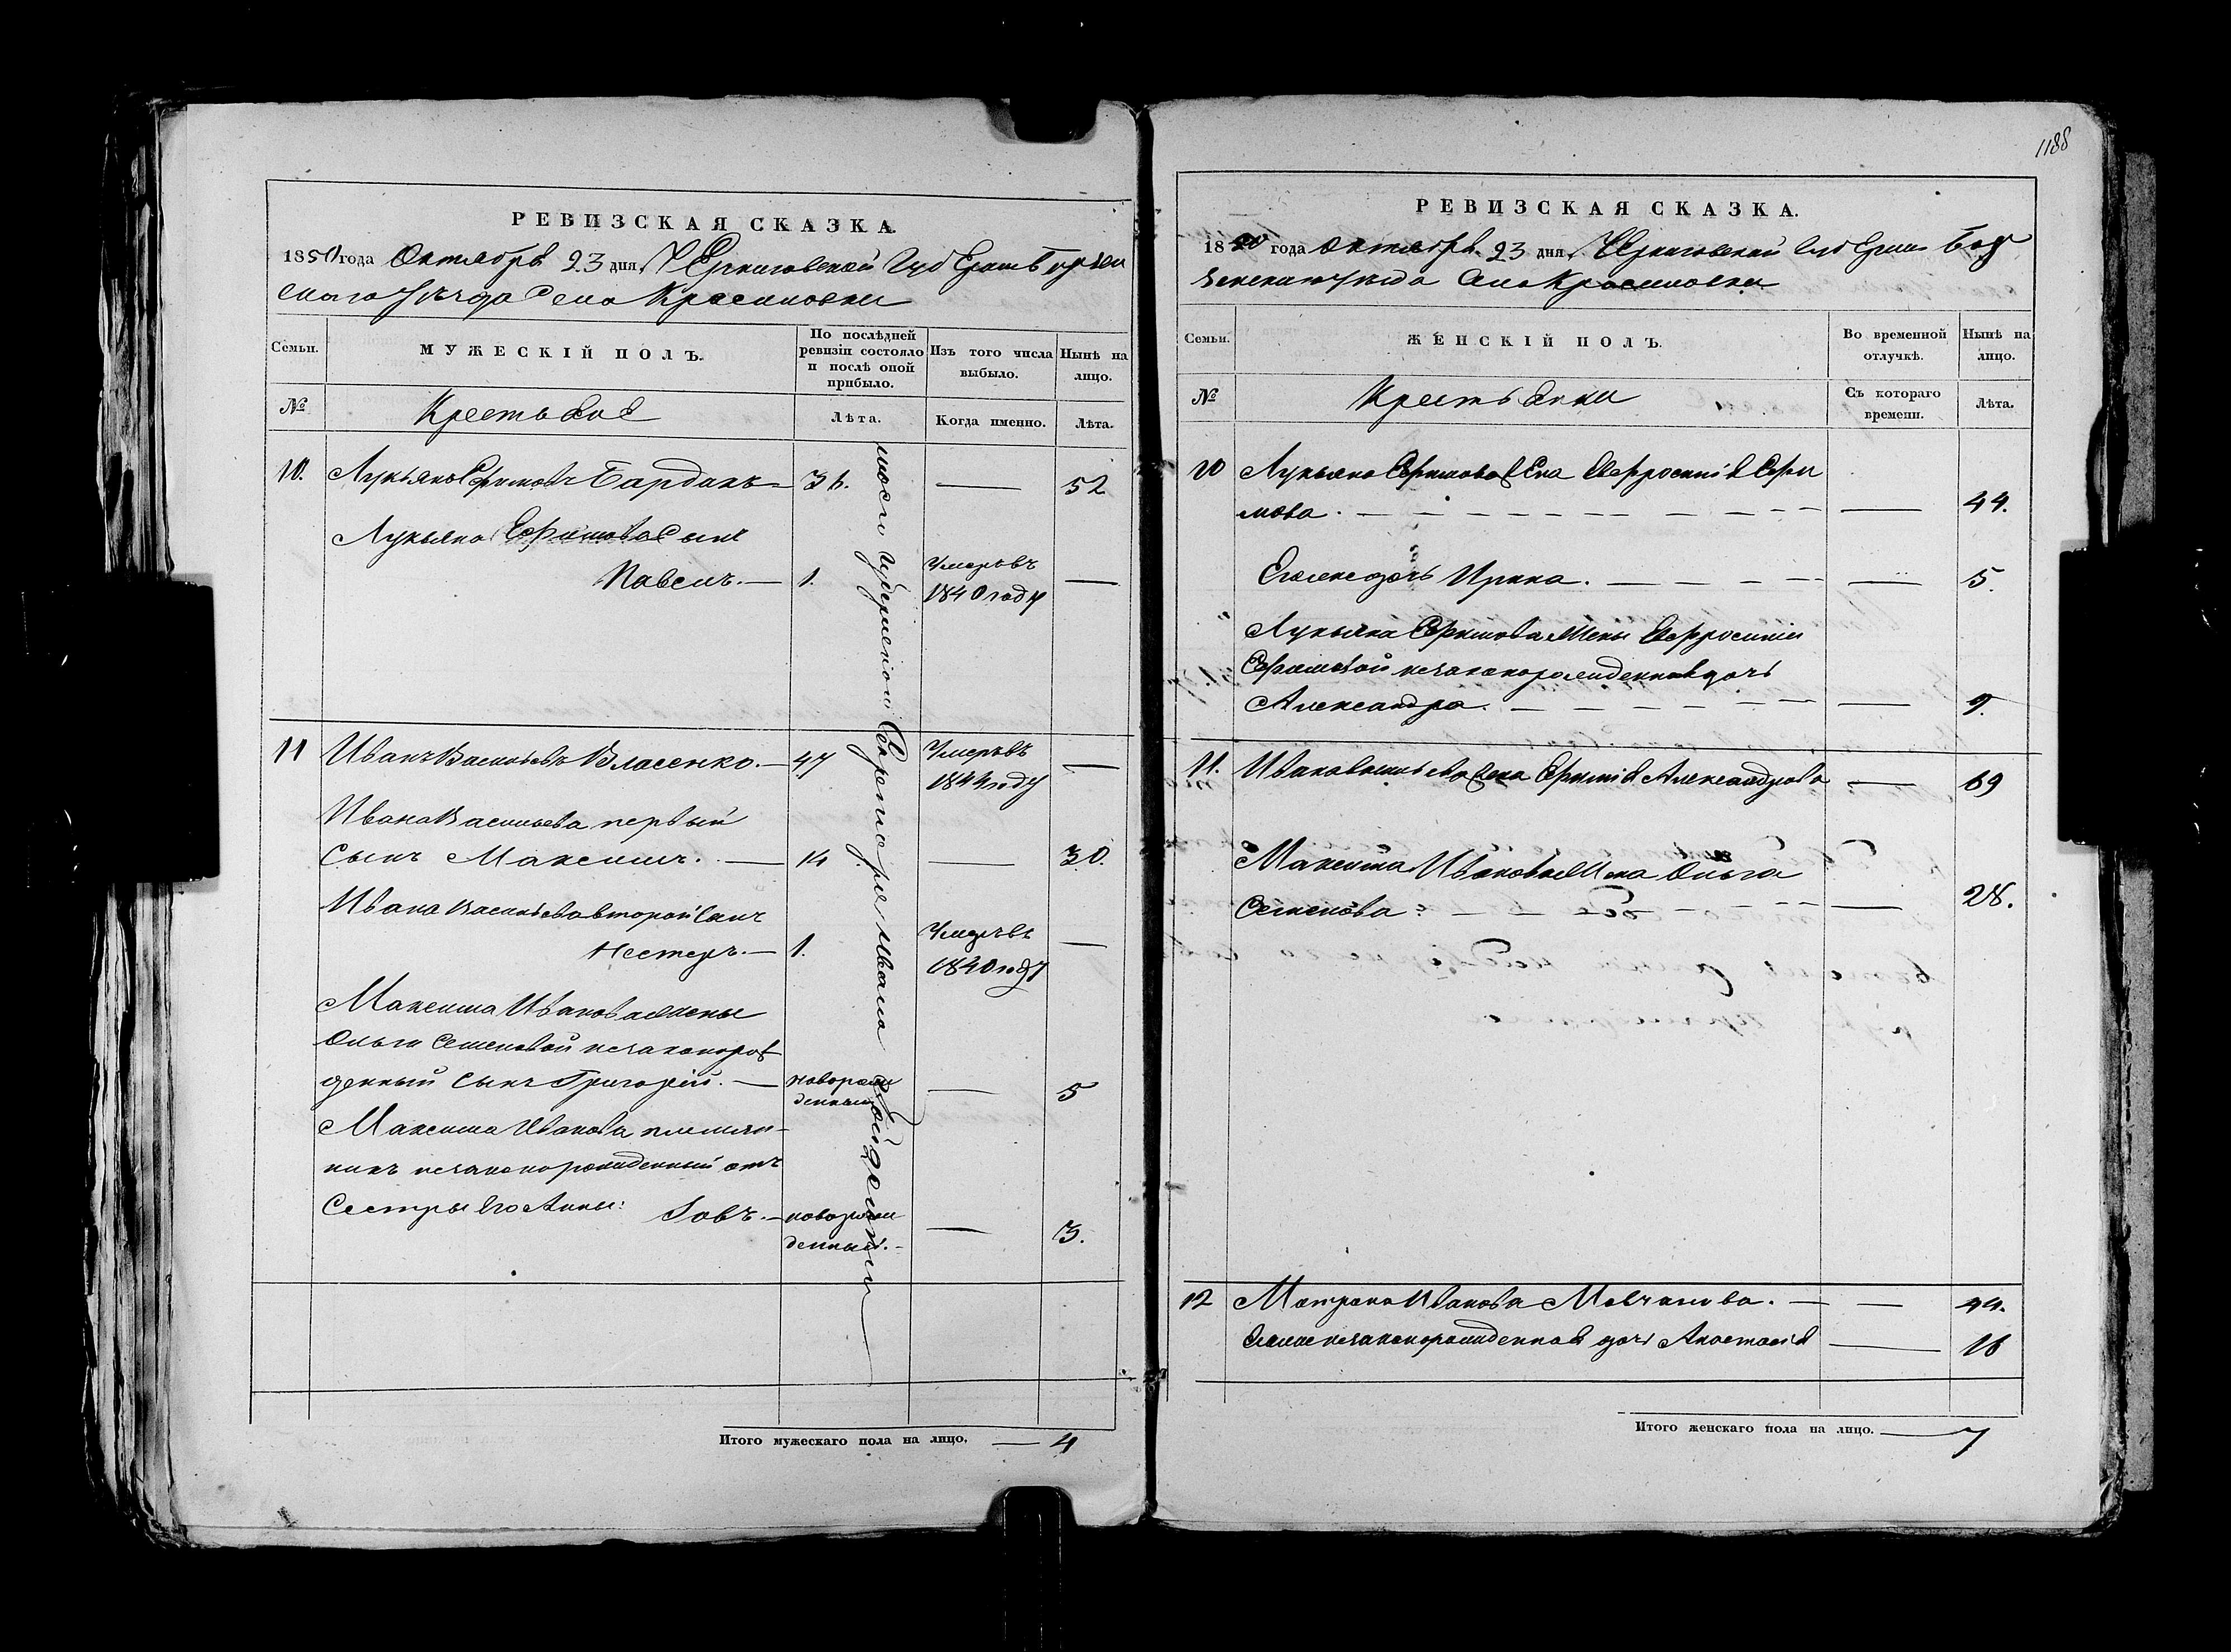 1188
РЕВИЗСКАЯ СКАЗКА.
1850 года Октября 23 дня, Черниговской Губерніи Борзен
скаго Уѣзда Села Красиловки
Семьи.
МУЖЕСКІЙ ПОЛЪ.
По послѣдней ревизіи состояло и послѣ оной прибыло.
Изъ того числа выбыло.
Нынѣ на лицо.
№
Крестьяне
Лѣта.
Когда именно.
Лѣта.
10. Лукьянъ Ефимовъ Бардакъ — 36. — 52
Лукьяна Ефимова Сынъ
Павелъ. — 1. Умеръ въ
1840 году —
11 Иванъ Васильевъ Власенко. — 47 Умеръ въ
1844 году —
Ивана Васильева первый
Сынъ Максимъ. — 14 — 30.
Ивана Васильева второй Сынъ
Нестеръ. — 1. Умеръ въ
1840 году —
Максима Иванова жены
Ольги Семеновой незаконорож
денный Сынъ Григорій. — новорож
денный — 5
Максима Иванова племян-
никъ незаконорожденный отъ
Сестры Его Анны: Іовъ. — новорож
денный. — 3.
Губернской Секретарь Иванъ
Итого мужескаго пола на лицо. — 4
РЕВИЗСКАЯ СКАЗКА.
1850 года Октября 23 дня, Черниговской Губерніи Бор
зенскаго Уѣзда Села Красиловки
Семьи.
ЖЕНСКІЙ ПОЛЪ.
Во временной отлучкѣ.
Нынѣ на лицо.
№
Крестьянки
Съ котораго времени.
Лѣта.
10 Лукьяна Ефимова Жена Евфросинія Ефи
мова. — — 44.
Ирина. — — 5.
Лукьяна Ефимова Жены Евфросиніи
Ефимовой незаконорожденная дочь
Александра. — — 9.
11. Ивана Васильева Жена Ефимія Александрова — 69
Максима Иванова Жена Ольга
Семенова: — — 28.
12 Матрона Иванова Мовчанова. — — 44.
незаконорожденная дочь Анастасія — 16
Итого женскаго пола на лицо. — 7